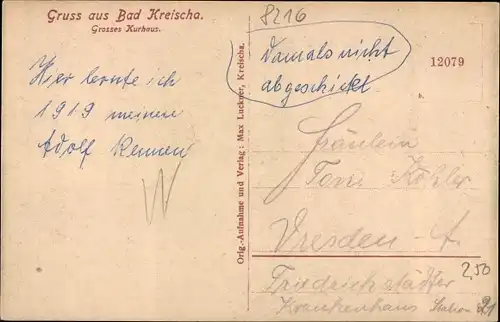 Gruss aus Bad Kreischa.
Grosses Kurhaus.
Hier lernte ich
1919 meinen
Adolf kennen
W
Orig.-Aufnahme und Verlag: Max Luckner, Kreischa.
8216
Damals nicht
abgeschickt
12079
Fräulein
Toni Köhler
Dresden - A.
2,50
Friedrichstädter
Krankenhaus Station 21